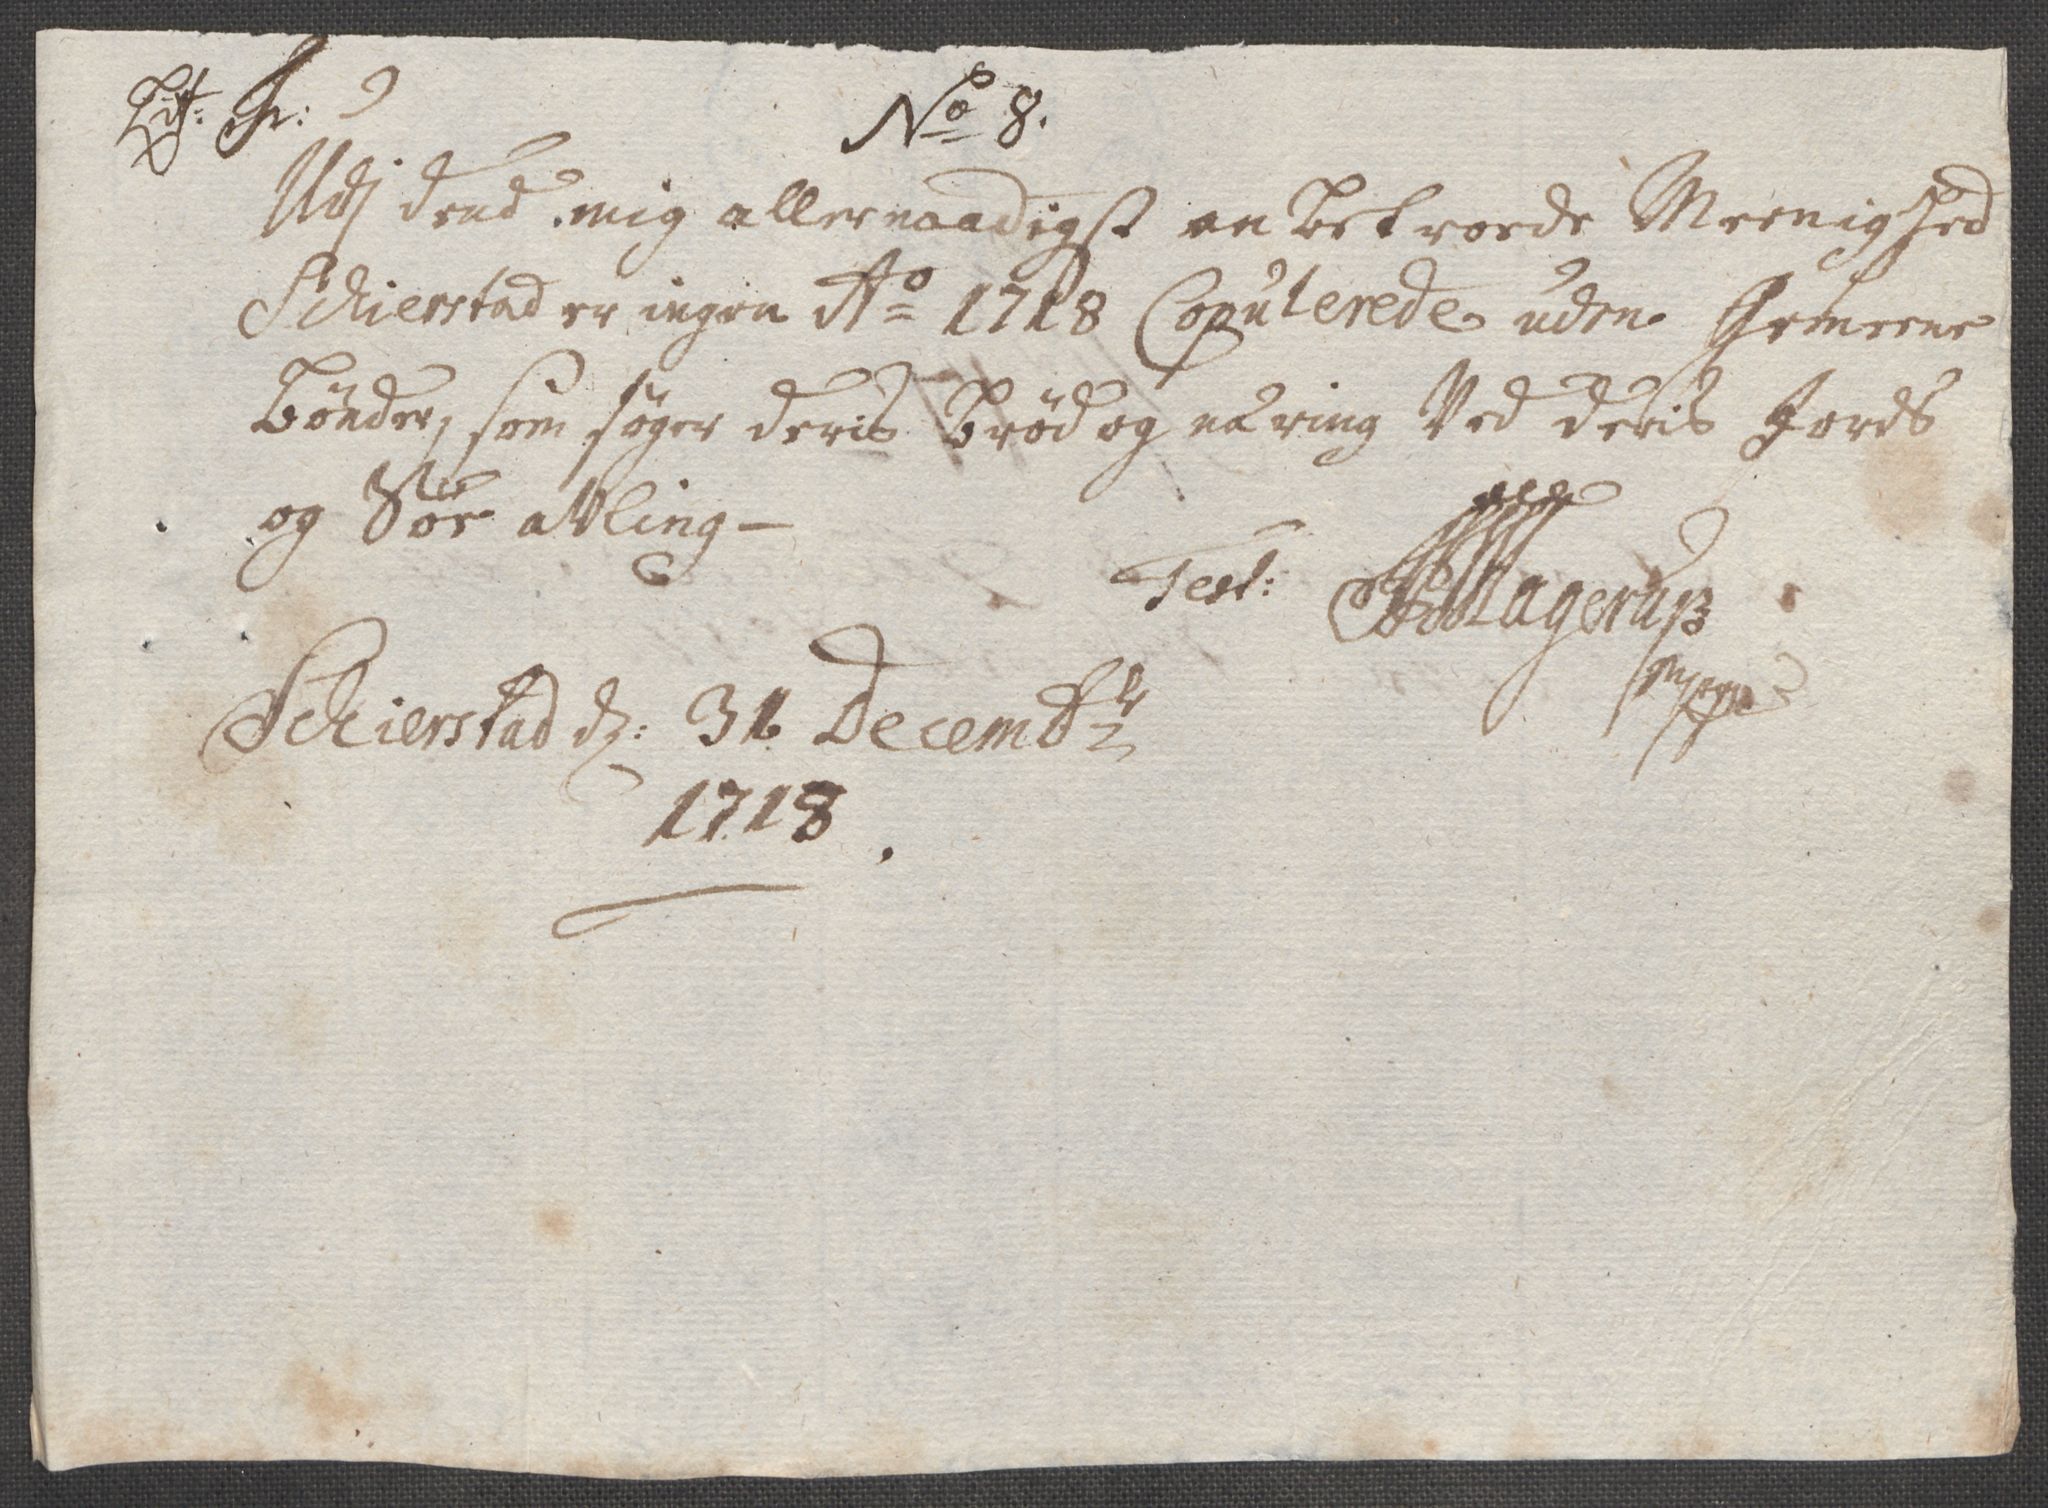 Lit: G:
No 8.
Udj dend mig allernaadigst an betroede Meenighed
Schierstad er ingen Ao 1718 Copulerede uden Gemeene
Bønder, som søger deris brød og næring Ved deris Jords
og Söe aVling –
Test: Hagerup
mppa
Schierstad dz: 31 Decembr
1718.